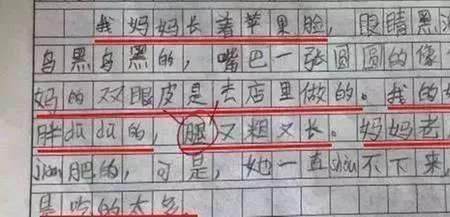 我妈妈长着苹果脸，眼睛黑
乌黑乌黑的，嘴巴一张圆圆的像
妈的双眼皮是去店里做的。我的
胖dūdū的，腿又粗又长。妈妈老
jiǎn肥的，可是，她一直shòu不下来，
是吃的太多。